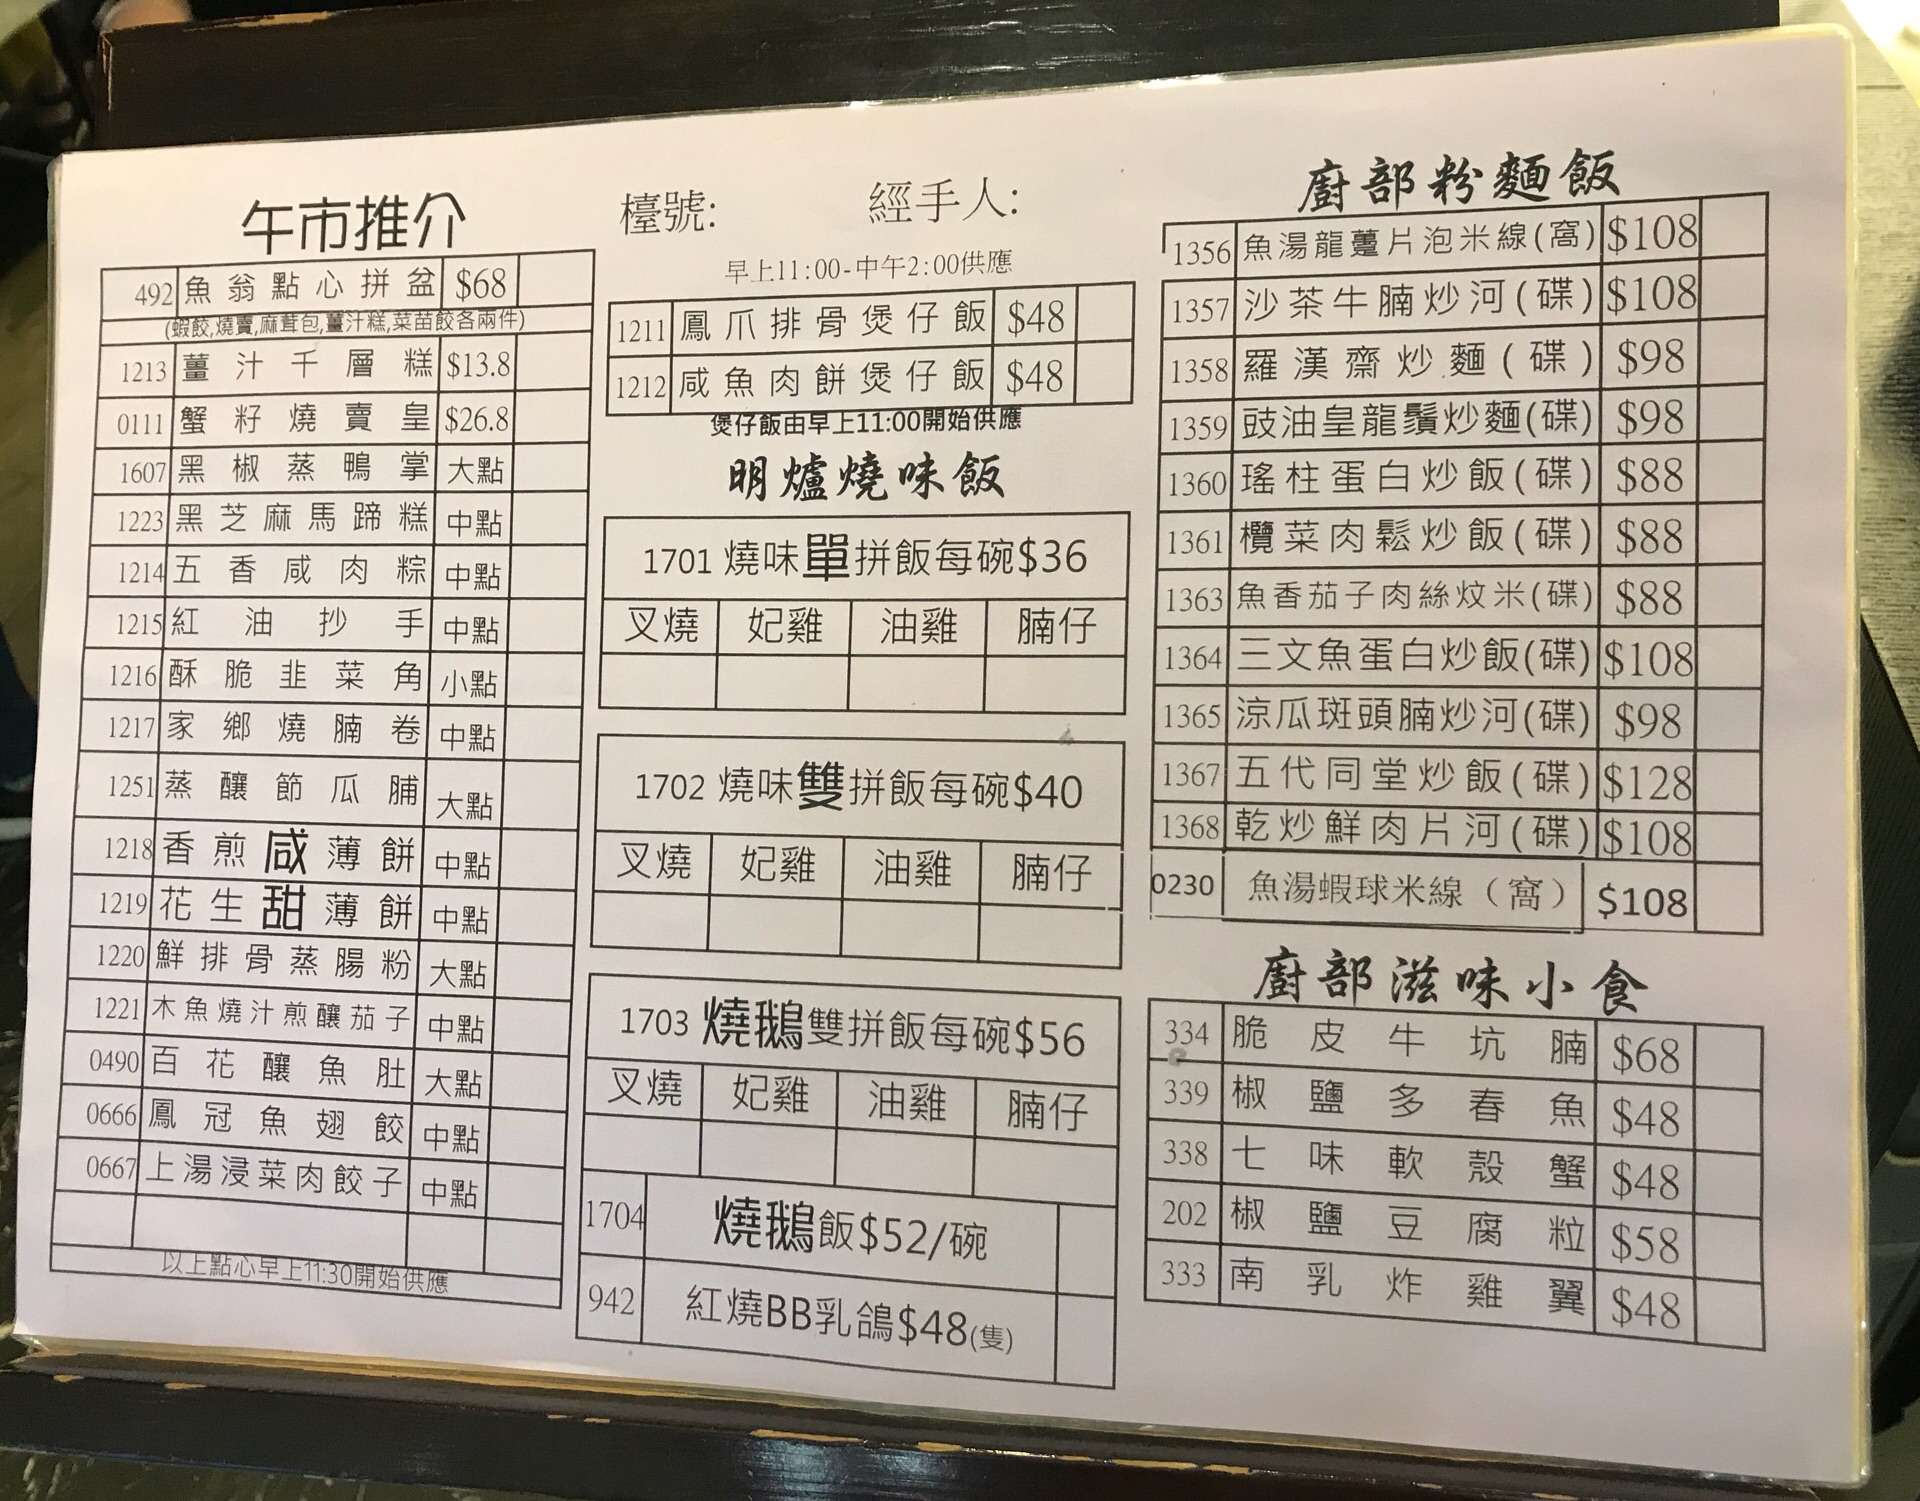 午市推介
492 魚翁點心拼盆 $68
(蝦餃,燒賣,麻茸包,薑汁糕,菜苗餃各兩件)
1213 薑汁千層糕 $13.8
0111 蟹籽燒賣皇 $26.8
1607 黑椒蒸鴨掌 大點
1223 黑芝麻馬蹄糕 中點
1214 五香咸肉粽 中點
1215 紅油抄手 中點
1216 酥脆韭菜角 小點
1217 家鄉燒腩卷 中點
1251 蒸釀節瓜脯 大點
1218 香煎咸薄餅 中點
1219 花生甜薄餅 中點
1220 鮮排骨蒸腸粉 大點
1221 木魚燒汁煎釀茄子 中點
0490 百花釀魚肚 大點
0666 鳳冠魚翅餃 中點
0667 上湯浸菜肉餃子 中點
以上點心早上11:30開始供應
檯號: 經手人:
早上11:00-中午2:00供應
1211 鳳爪排骨煲仔飯 $48
1212 咸魚肉餅煲仔飯 $48
煲仔飯由早上11:00開始供應
明爐燒味飯
1701 燒味單拼飯每碗$36
叉燒 妃雞 油雞 腩仔
1702 燒味雙拼飯每碗$40
叉燒 妃雞 油雞 腩仔
1703 燒鵝雙拼飯每碗$56
叉燒 妃雞 油雞 腩仔
1704 燒鵝飯$52/碗
942 紅燒BB乳鴿$48(隻)
廚部粉麵飯
1356 魚湯龍躉片泡米線(窩) $108
1357 沙茶牛腩炒河(碟) $108
1358 羅漢齋炒麵(碟) $98
1359 豉油皇龍鬚炒麵(碟) $98
1360 瑤柱蛋白炒飯(碟) $88
1361 欖菜肉鬆炒飯(碟) $88
1363 魚香茄子肉絲炆米(碟) $88
1364 三文魚蛋白炒飯(碟) $108
1365 涼瓜斑頭腩炒河(碟) $98
1367 五代同堂炒飯(碟) $128
1368 乾炒鮮肉片河(碟) $108
0230 魚湯蝦球米線（窩） $108
廚部滋味小食
334 脆皮牛坑腩 $68
339 椒鹽多春魚 $48
338 七味軟殼蟹 $48
202 椒鹽豆腐粒 $58
333 南乳炸雞翼 $48